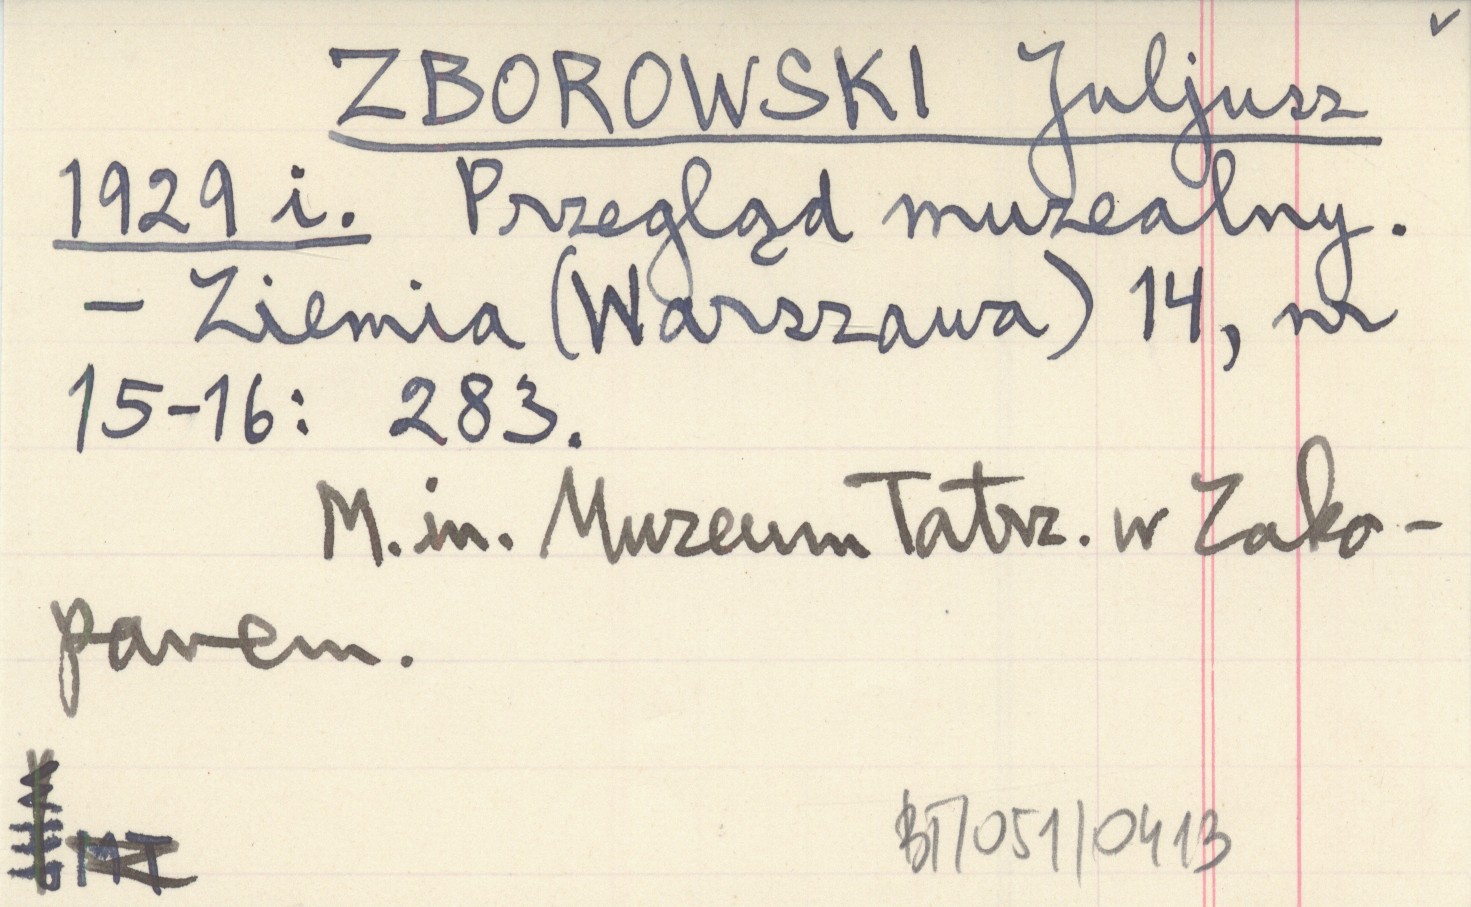 ZBOROWSKI Juljusz
1929 i. Przegląd muzealny.
– Ziemia (Warszawa) 14, nr
15-16: 283.
M. in. Muzeum Tatrz. w Zako-
panem.
BT/051/0413